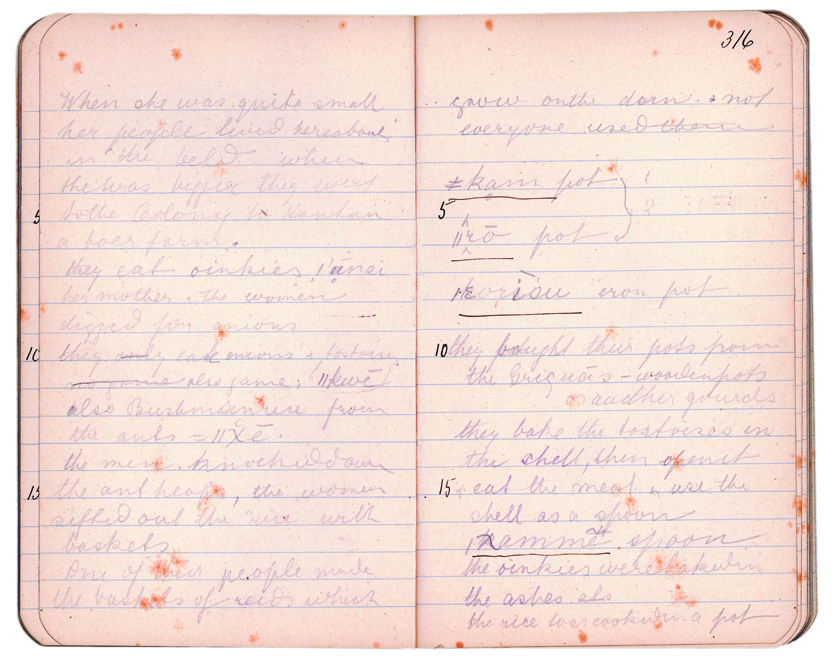 When she was quite small
her people lived hereabouts
in the veld when
she was bigger they went
5 to the Colony to
a boer farm.
they eat oinkies,
her mother & the women
digged for onions
10 they only eat onions & tortoises
no game also game, ǁkwē
also Bushman rice from
the ants = ǁχē.
the men knocked down
15 the ant heaps, the women
sifted out the rice with
baskets
One of their people made
the baskets of reeds which
316
grow on the dam & not
everyone used them
ǂkam pot 1
5 2
ǁrō pot
iron pot
10 they bought their pots from
the Griquas – wooden pots
another gourds
they bake the tortoises in
the shell, then open it
15 & eat the meat & use the
shell as a spoon
spoon
the oinkies were baked in
the ashes als
the rice was cooked in a pot